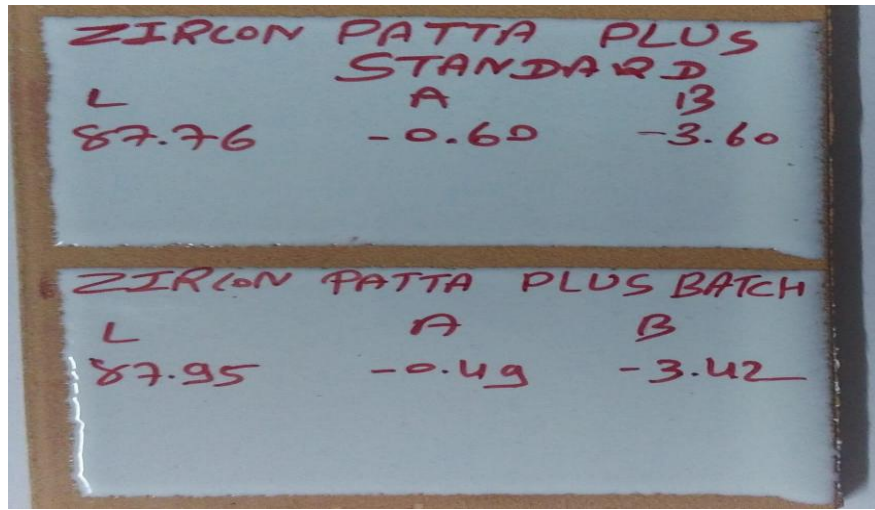 ZIRCON PATTA PLUS
STANDARD
L A B
87.76 -0.60 -3.60
ZIRCON PATTA PLUS BATCH
L A B
87.95 -0.49 -3.42